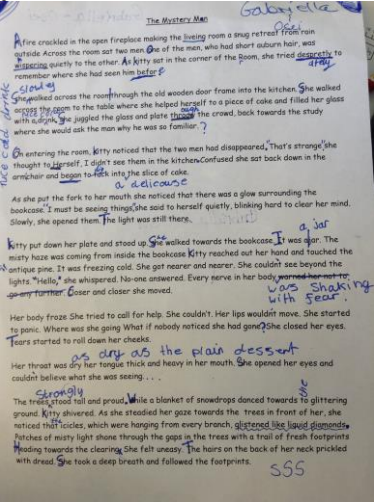 Gabriella
The Mystery Man
A fire crackled in the open fireplace making the liveing room a snug retreat from rain
outside Across the room sat two men. One of the men, who had short auburn hair, was
wispering quietly to the other. As Kitty sat in the corner of the Room, she tried despretly to
remember where she had seen him before
slowly
She walked across the room through the old wooden door frame into the kitchen. She walked
across the room to the table where she helped herself to a piece of cake and filled her glass
nice cold drink
with a drink. She juggled the glass and plate the crowd, back towards the study
where she would ask the man why he was so familiar.?
On entering the room, Kitty noticed that the two men had disappeared. "That's strange" she
thought to Herself, I didn't see them in the kitchen. Confused she sat back down in the
armchair and began to tuck into the slice of cake.
a delicouse
As she put the fork to her mouth she noticed that there was a glow surrounding the
bookcase. "I must be seeing things," she said to herself quietly, blinking hard to clear her mind.
Slowly, she opened them. The light was still there.
a jar
Kitty put down her plate and stood up. She walked towards the bookcase. It was ajar. The
misty haze was coming from inside the bookcase Kitty reached out her hand and touched the
antique pine. It was freezing cold. She got nearer and nearer. She couldn't see beyond the
lights. "Hello," she whispered. No-one answered. Every nerve in her body warned her not to
go any further. Closer and closer she moved.
was Shaking
with fear.
Her body froze She tried to call for help. She couldn't. Her lips wouldn't move. She started
to panic. Where was she going What if nobody noticed she had gone? She closed her eyes.
Tears started to roll down her cheeks.
as dry as the plain dessert
Her throat was dry her tongue thick and heavy in her mouth. She opened her eyes and
couldn't believe what she was seeing....
Strongly
The trees stood tall and proud, while a blanket of snowdrops danced towards to glittering
the
ground. Kitty shivered. As she steadied her gaze towards the trees in front of her, she
noticed that icicles, which were hanging from every branch, glistened like liquid diamonds.
Patches of misty light shone through the gaps in the trees with a trail of fresh footprints
Heading towards the clearing. She felt uneasy. The hairs on the back of her neck prickled
with dread. She took a deep breath and followed the footprints.
SSS